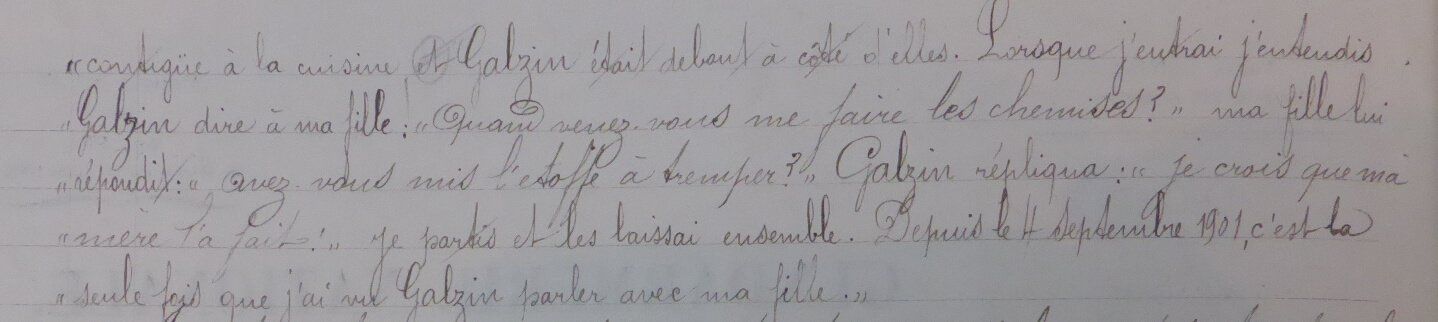 « contigüe à la cuisine et Galzin était debout à côté d'elles. Lorsque j'entrai j'entendis
« Galzin dire à ma fille : « Quand venez-vous me faire les chemises ? » ma fille lui
« répondit : « avez-vous mis l'étoffe à tremper ? » Galzin répliqua : « je crois que ma
« mère l'a fait ! » je partis et les laissai ensemble. Depuis le 4 septembre 1901, c'est la
« seule fois que j'ai vu Galzin parler avec ma fille. »